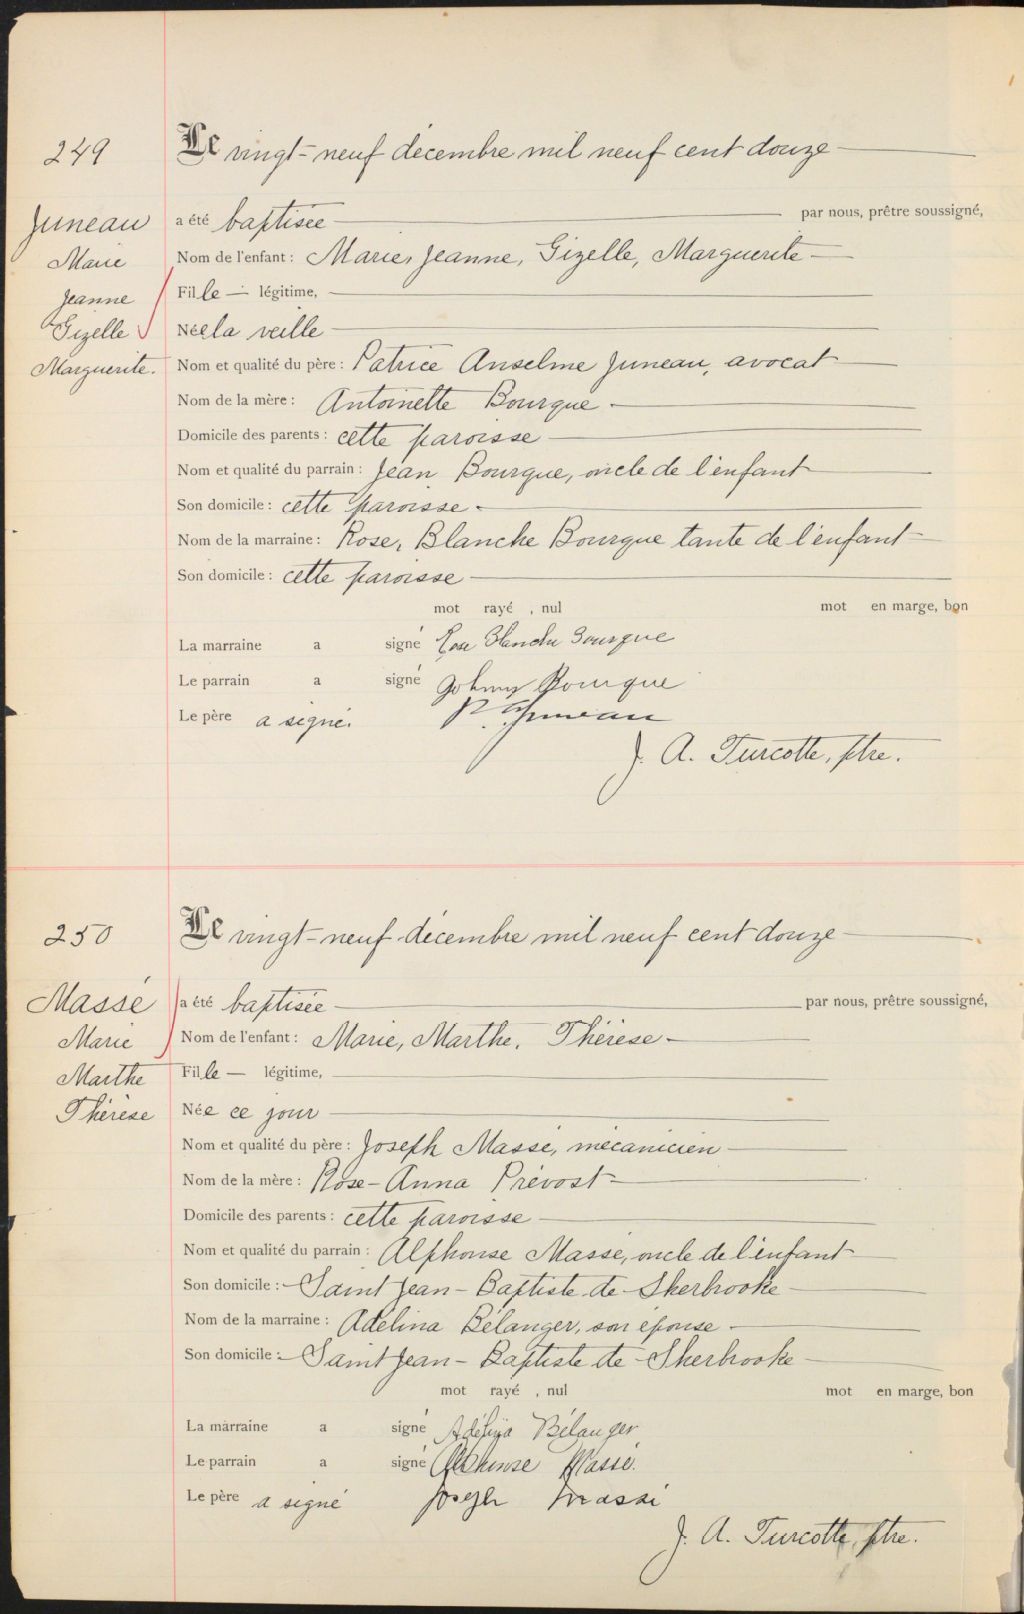 249
Le vingt-neuf décembre mil neuf cent douze
Juneau
Marie
Jeanne
Gizelle
Marguerite.
a été baptisée par nous, prêtre soussigné,
Nom de l'enfant : Marie, Jeanne, Gizelle, Marguerite
Fille légitime,
Née la veille
Nom et qualité du père : Patrice Anselme Juneau, avocat
Nom de la mère : Antoinette Bourque
Domicile des parents : cette paroisse
Nom et qualité du parrain : Jean Bourque, oncle de l'enfant
Son domicile : cette paroisse
Nom de la marraine : Rose, Blanche Bourque tante de l'enfant
Son domicile : cette paroisse
mot rayé , nul mot en marge, bon
La marraine a signé Rose Blanche Bourque
Le parrain a signé Johnny Bourque
Le père a signé. P. A. Juneau
J. A. Turcotte, ptre.
250
Le vingt-neuf décembre mil neuf cent douze
Massé
Marie
Marthe
Thérèse
a été baptisée par nous, prêtre soussigné,
Nom de l'enfant : Marie, Marthe, Thérèse
Fille légitime,
Née ce jour
Nom et qualité du père : Joseph Massé, mécanicien
Nom de la mère : Rose-Anna Prévost
Domicile des parents : cette paroisse
Nom et qualité du parrain : Alphonse Massé, oncle de l'enfant
Son domicile : Saint Jean-Baptiste de Sherbrooke
Nom de la marraine : Adélina Bélanger, son épouse
Son domicile : Saint Jean-Baptiste de Sherbrooke
mot rayé , nul mot en marge, bon
La marraine a signé Adélina Bélanger
Le parrain a signé Alphonse Massé.
Le père a signé Joseph Massé
J. A. Turcotte, ptre.